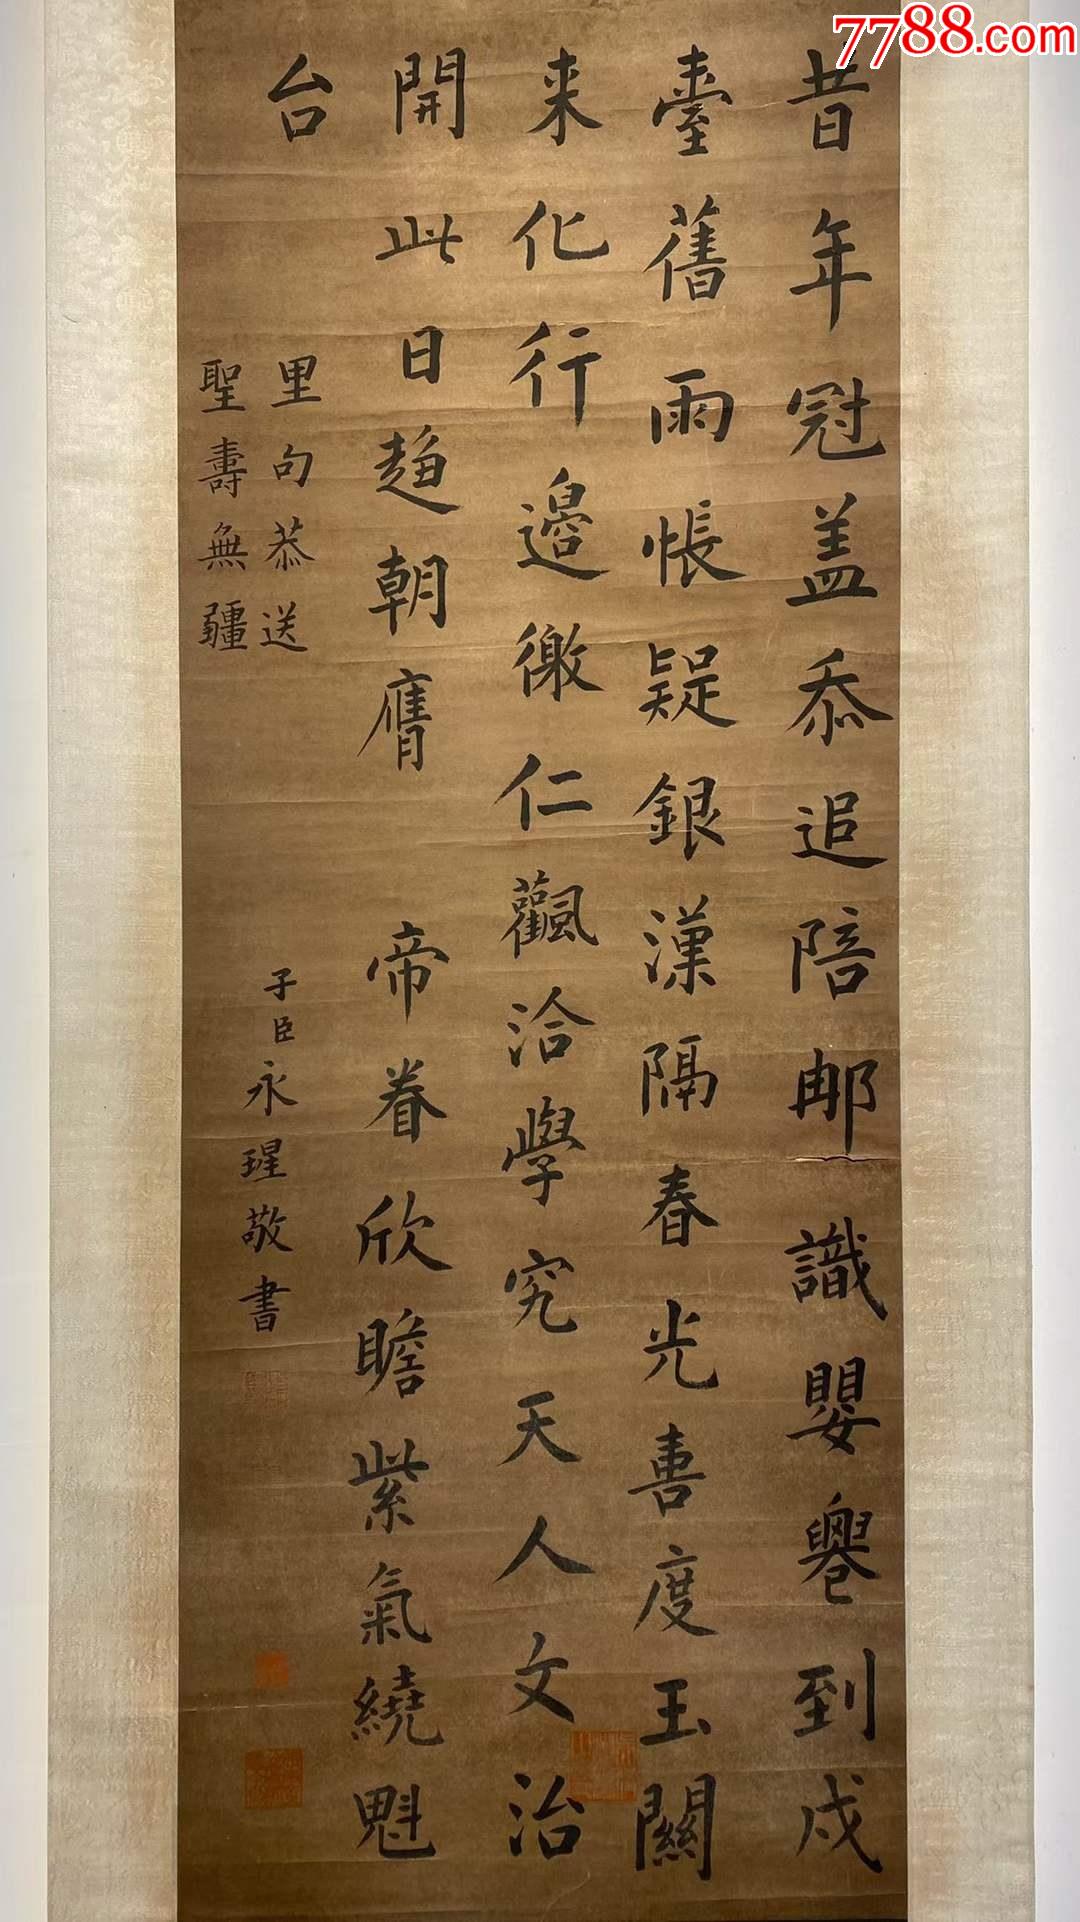 7788.com
昔年冠盖忝追陪那識嬰到戍
臺舊雨悵疑銀漢隔春光喜度玉關
来化行邊徼仁飌洽學究天人文治
開此日趋朝膺帝眷欣瞻紫氣繞魁
台
里句恭送
聖壽無疆
子臣永瑆敬書